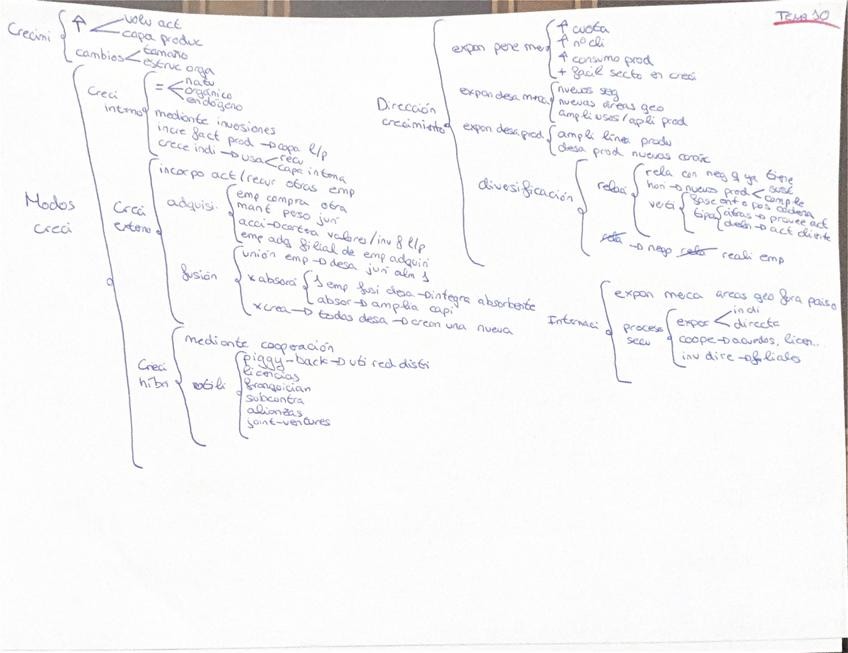 TEMA 10
Crecimi
↑
volu act
capa produc
cambios
tamaño
estruc orga
Modos
creci
Creci
interno
=
natu
orgánico
endógeno
mediante inversiones
incre fact prod → capa l/p
crece indi → usa
recu
capa interna
Creci
externo
incorpo act/recur otras emp
adquisi.
emp compra otra
mant peso juri
acci → cartera valores/inv f l/p
emp adq filial de emp adquiri
fusión
unión emp → desa juri alm 1
x absorci
1 emp fusi desa → integra absorbente
absor → amplia capi
x crea → todas desa → crean una nueva
Creci
híbri
mediante cooperación
piggy-back → uti red distri
licencias
franquician
subcontra
alianzas
joint-ventures
Dirección
crecimiento
expan pene merca
↑ cuota
↑ nº cli
↑ consumo prod
+ facil secto en creci
expan desa merca
nuevos seg
nuevas áreas geo
ampli usos/apli prod
expan desa prod
ampli línea produ
desa prod nuevas carac
diversificación
relaci
rela con neg q ya tiene
hori → nuevos prod
susti
comple
verti
fase ant o pos cadena
tipos
atrás → provee act
delan → act cliente
→ nego
reali emp
Internaci
expan merca áreas geo fuera país o
proceso
secu
expor
indi
directa
coope → acuerdos, licen...
inv dire → filiales